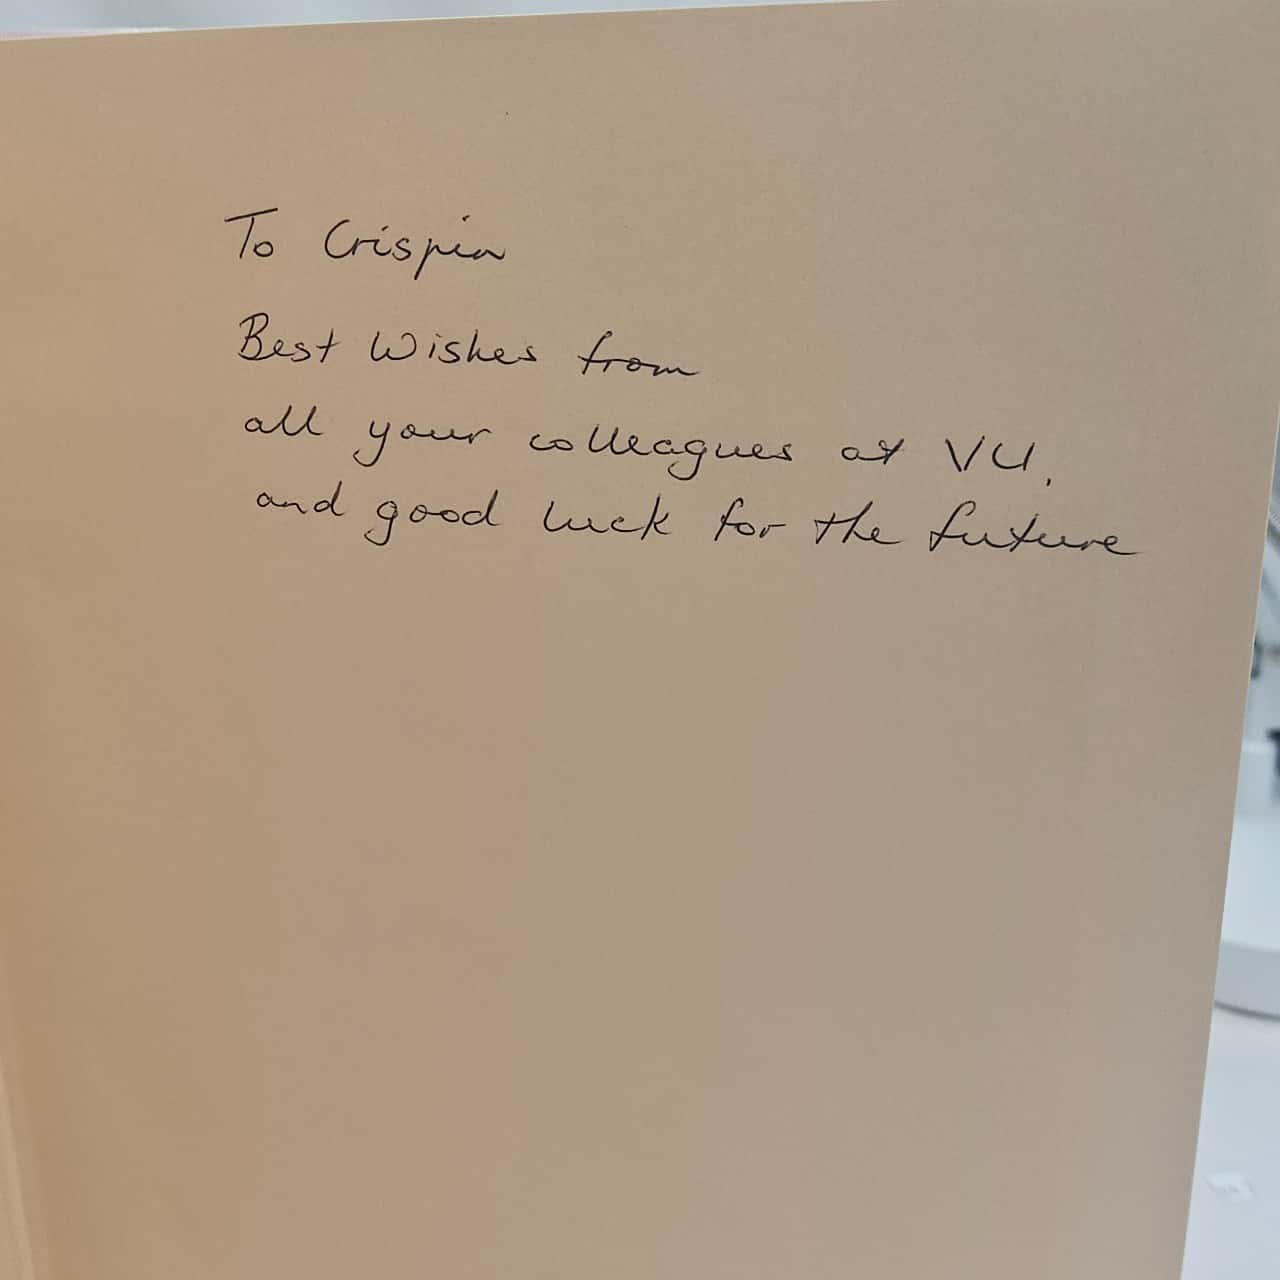 To Crispin
Best Wishes from
all your colleagues at VU,
and good luck for the future